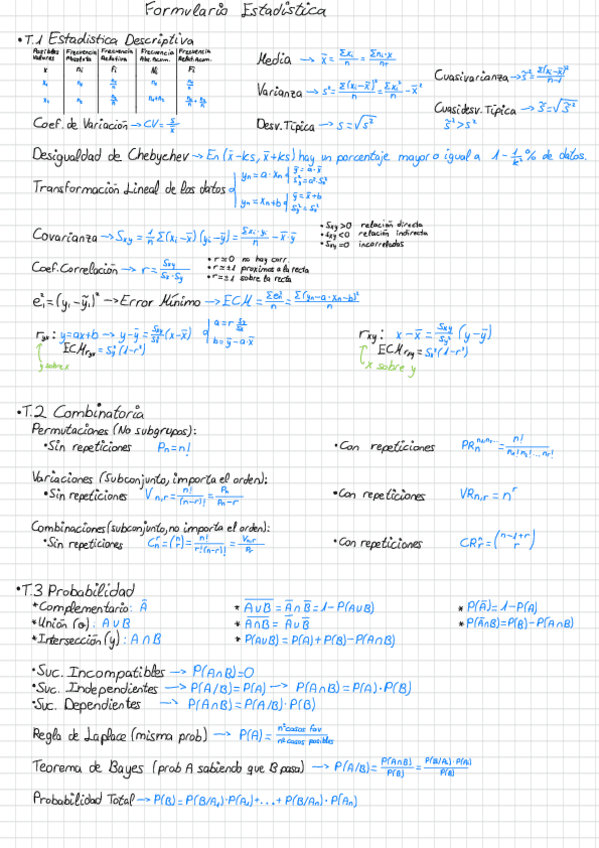 Formulario Estadística
•T.1 Estadística Descriptiva
Posibles Valores | Frecuencia Absoluta | Frecuencia Relativa | Frecuencia Abs. Acum. | Frecuencia Relat. Acum.
x | ni | fi | Ni | Fi
Media → x̄ = Σxi/n = Σni·x/n
Varianza → s² = Σ(xi-x̄)²/n = Σxi²/n - x̄²
Cuasivarianza → s̃² = Σ(xi-x̄)²/n-1
Coef. de Variación → CV = s/x̄
Desv. Típica → s = √s²
Cuasidesv. Típica → s̃ = √s̃²
s̃² > s²
Desigualdad de Chebychev → En (x̄-ks, x̄+ks) hay un porcentaje mayor o igual a 1 - 1/k² % de datos.
Transformación Lineal de los datos
yn = a·xn { ȳ = a·x̄
Sy² = a²·Sx²
yn = xn + b { ȳ = x̄ + b
Sy² = Sx²
Covarianza → Sxy = 1/n Σ(xi-x̄)(yi-ȳ) = Σxi·yi/n - x̄·ȳ
• Sxy>0 relación directa
• Sxy<0 relación indirecta
• Sxy=0 incorreladas
Coef. Correlación → r = Sxy/Sx·Sy
• r=0 no hay corr.
• r≈±1 proximos a la recta
• r=±1 sobre la recta
e²i = (yi - ỹi)² → Error Mínimo → ECM = Σei²/n = Σ(yn-a·xn-b)²/n
ryx: y=ax+b → y-ȳ = Sxy/Sx² (x-x̄) { a = r Sy/Sx
b = ȳ-a·x̄
ECMryx = Sy²(1-r²)
y sobre x
rxy: x-x̄ = Sxy/Sy² (y-ȳ)
ECMrxy = Sx²(1-r²)
x sobre y
•T.2 Combinatoria
Permutaciones (No subgrupos):
•Sin repeticiones Pn = n!
•Con repeticiones PRn = n!/n1! n2! ... nr!
Variaciones (Subconjunto, importa el orden):
•Sin repeticiones Vn,r = n!/(n-r)! = Pn/Pn-r
•Con repeticiones VRn,r = n^r
Combinaciones (subconjunto, no importa el orden):
•Sin repeticiones Crn = (n r) = n!/r!(n-r)! = Vn,r/Pr
•Con repeticiones CRrn = (n-1+r r)
•T.3 Probabilidad
*Complementario: Ā
* A̅∪̅B̅ = Ā∩B̄ = 1-P(A∪B)
* P(Ā) = 1-P(A)
*Unión (o): A∪B
* A̅∩̅B̅ = Ā∪B̄
* P(Ā∩B) = P(B)-P(A∩B)
*Intersección (y): A∩B
* P(A∪B) = P(A)+P(B)-P(A∩B)
•Suc. Incompatibles → P(A∩B)=0
•Suc. Independientes → P(A/B)=P(A) → P(A∩B)=P(A)·P(B)
•Suc. Dependientes → P(A∩B)=P(A/B)·P(B)
Regla de Laplace (misma prob) → P(A) = nºcasos fav/nº casos posibles
Teorema de Bayes (prob A sabiendo que B pasa) → P(A/B) = P(A∩B)/P(B) = P(B/A)·P(A)/P(B)
Probabilidad Total → P(B) = P(B/A1)·P(A1)+...+P(B/An)·P(An)